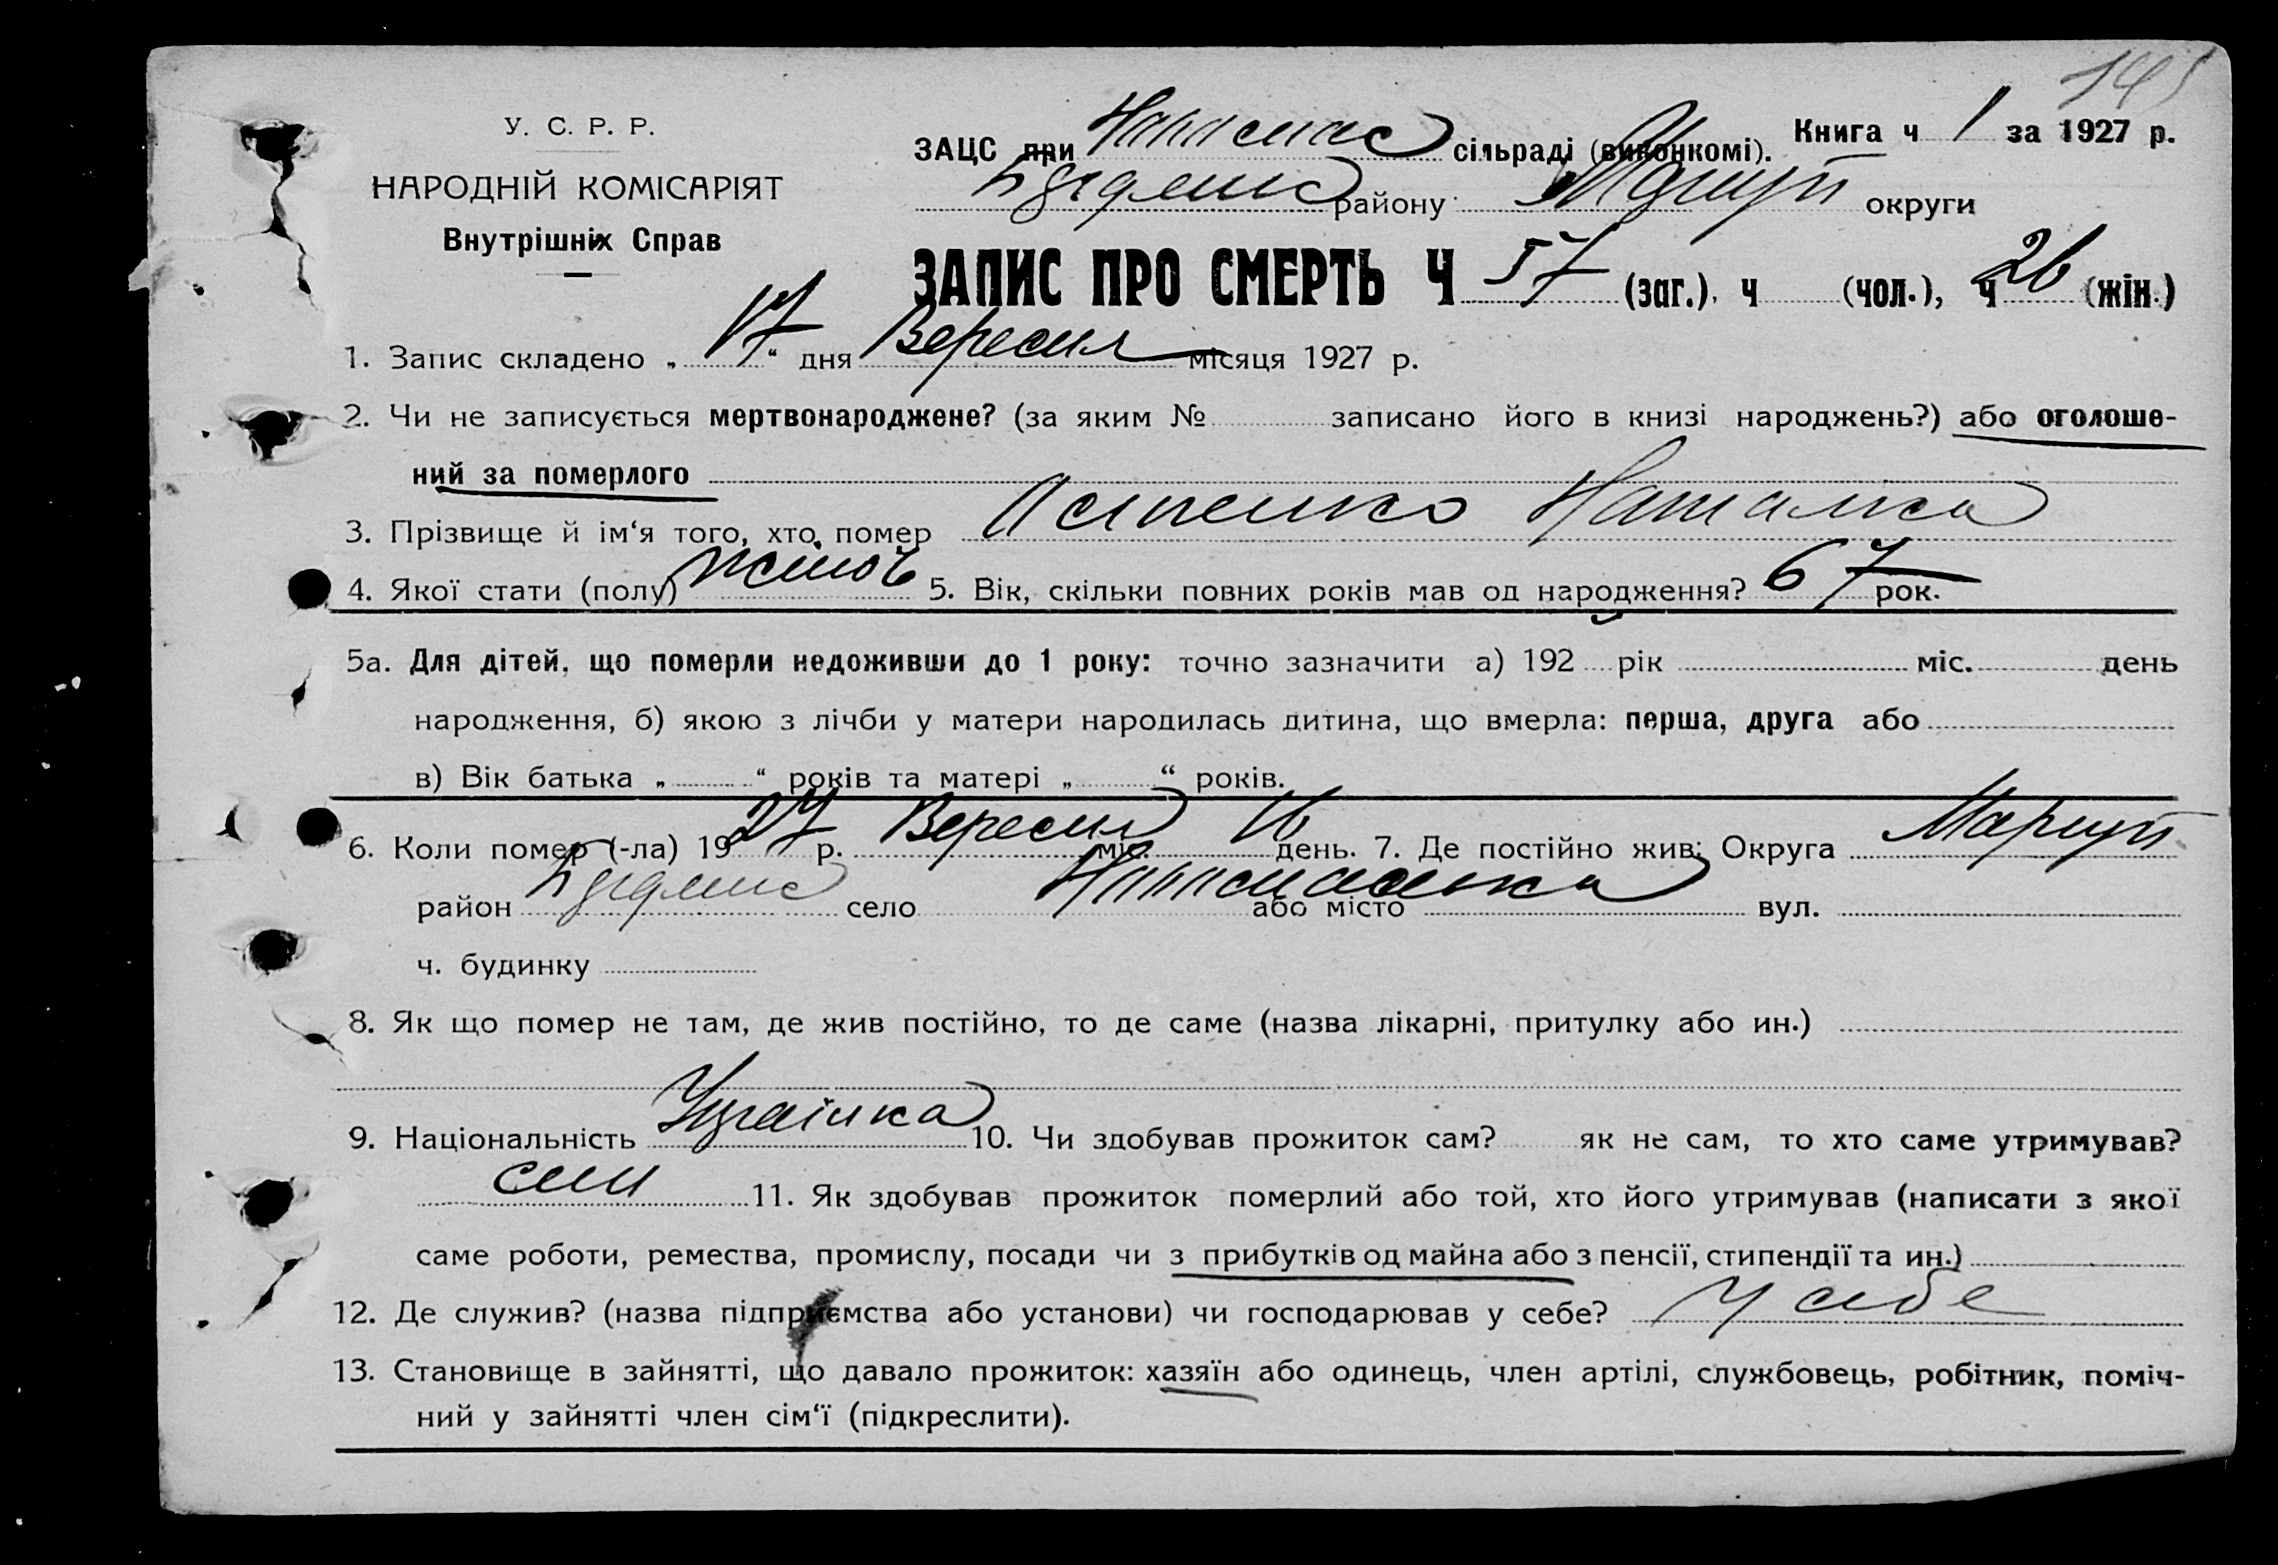 145
У. С. Р. Р.
НАРОДНІЙ КОМІСАРІЯТ
Внутрішніх Справ
ЗАЦС при сільраді (виконкомі). Книга ч 1 за 1927 р.
району Маріуп округи
ЗАПИС ПРО СМЕРТЬ Ч 57 (заг.), ч (чол.), ч 26 (жін.)
1. Запис складено „17“ дня Вересня місяця 1927 р.
2. Чи не записується мертвонароджене? (за яким № записано його в книзі народжень?) або оголоше-
ний за померлого
3. Прізвище й ім‘я того, хто помер Наталка
4. Якої стати (полу) жіноч 5. Вік, скільки повних років мав од народження? 67 рок.
5а. Для дітей, що померли недоживши до 1 року: точно зазначити а) 192 рік міс. день
народження, б) якою з лічби у матери народилась дитина, що вмерла: перша, друга або
в) Вік батька „ “ років та матері „ “ років.
6. Коли помер (-ла) 1927 р. Вересня міс. 16 день. 7. Де постійно жив: Округа Маріуп
район село або місто вул.
ч. будинку
8. Як що помер не там, де жив постійно, то де саме (назва лікарні, притулку або ин.)
9. Національність Українка 10. Чи здобував прожиток сам? як не сам, то хто саме утримував?
син 11. Як здобував прожиток померлий або той, хто його утримував (написати з якої
саме роботи, ремества, промислу, посади чи з прибутків од майна або з пенсії, стипендії та ин.)
12. Де служив? (назва підприємства або установи) чи господарював у себе? у себе
13. Становище в зайнятті, що давало прожиток: хазяїн або одинець, член артілі, службовець, робітник, поміч-
ний у зайнятті член сім‘ї (підкреслити).